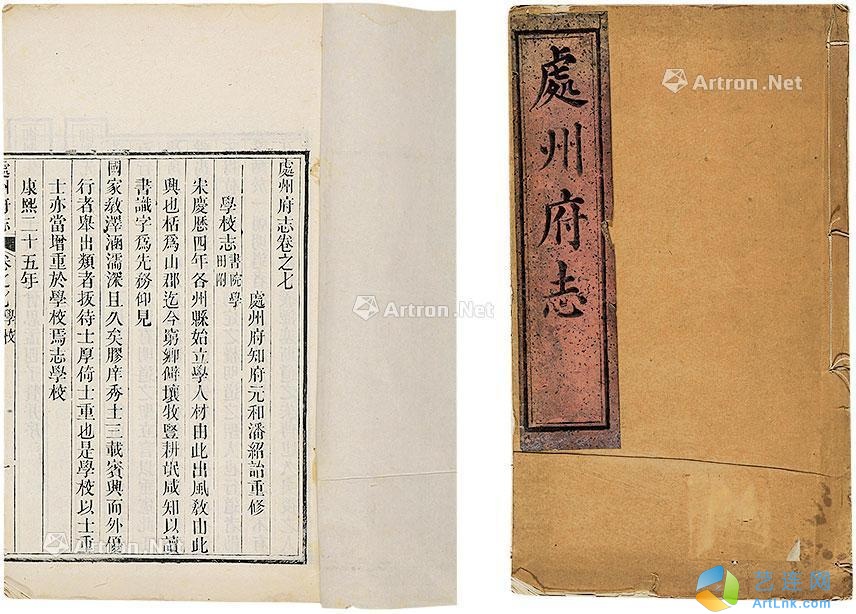 處州府志卷之七
學校志 書院 學田 附
處州府知府元和潘紹詒重修
宋慶曆四年各州縣始立學人材由此出風敎由此
興也栝爲山郡迄今窮鄉僻壤牧豎耕氓咸知以讀
書識字爲先務仰見
國家敎澤涵濡深且久矣膠庠秀士三載賓興而外優
行者舉出類者拔待士厚倚士重也是學校以士重
士亦當增重於學校焉志學校
康熙二十五年
處州府志 卷之七 學校
處州府志
Artron.Net
Artron.Net
Artron.Net
Artron.Net
艺连网
ArtLnk.com